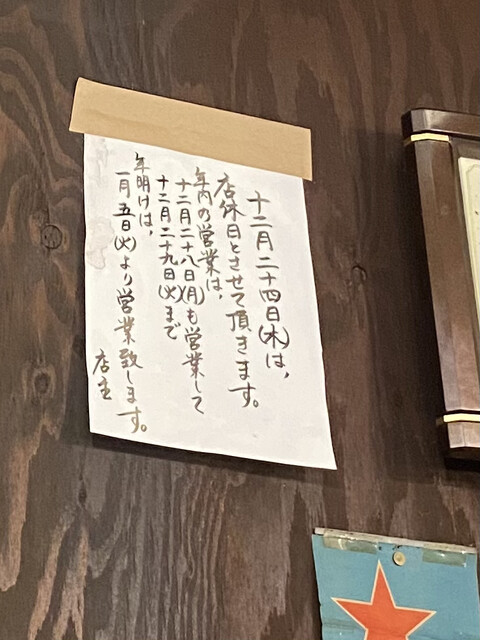 十二月二十四日(木)は、
店休日とさせて頂きます。
年内の営業は、
十二月二十八日(月)も営業して
十二月二十九日(火)まで
年明けは、
一月五日(火)より営業致します。
店主